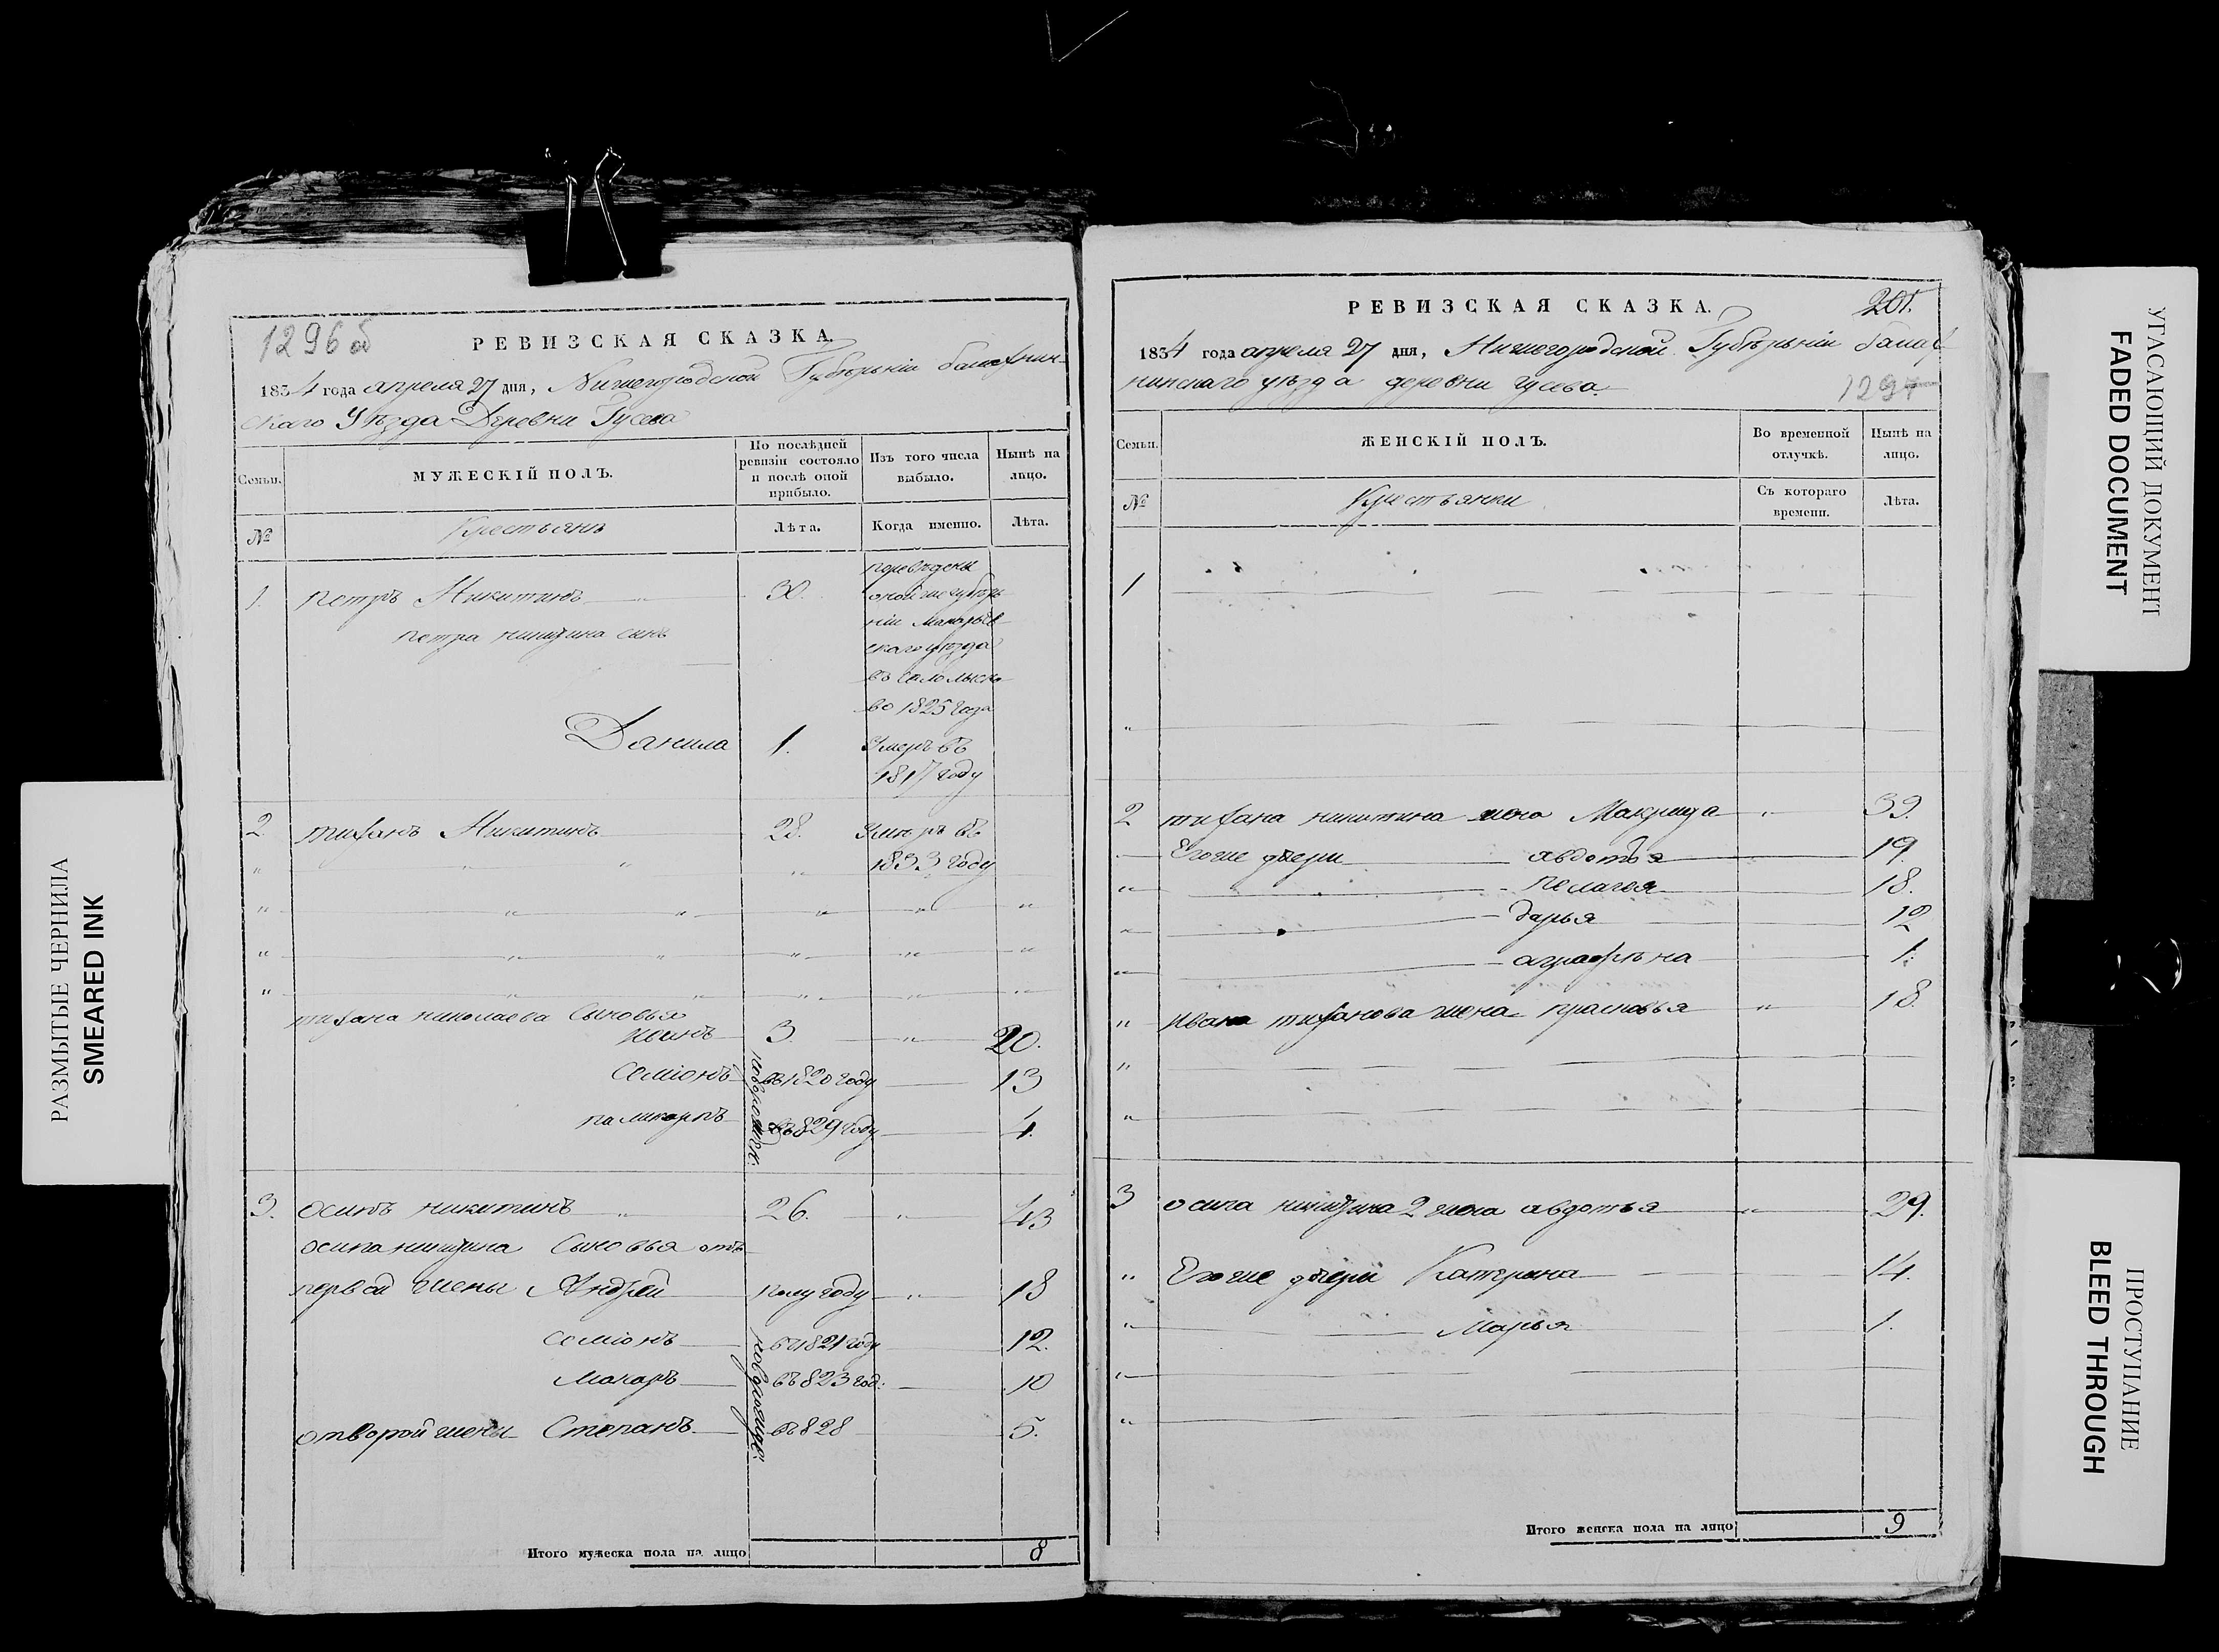 1296об
РЕВИЗСКАЯ СКАЗКА.
1834 года апреля 27 дня, Нижегородской Губѣрьніи балахнин-
скаго Уѣзда Деревни Гусева
Семьи.
МУЖЕСКІЙ ПОЛЪ.
По послѣдней ревизіи состояло и послѣ оной прибыло.
Изъ того числа выбыло.
Нынѣ на лицо.
№
Крестьянъ
Лѣта.
Когда именно.
Лѣта.
1. петръ Никитинъ 30. переведены
оной же губѣрь
ніи Макарьев
скаго уѣзда
въ село лыско
во 1825 года
петра никитина сынъ
Данила 1. Умеръ въ
1817 году
2. тифанъ Никитинъ 28. Умеръ въ
1833 году
тифана николаева Сыновья
иванъ 3. " 20.
Семіонъ въ 1820 году 13
паликарпъ въ 829 году 4.
новорожден.
3. осипъ никитинъ 26. " 43
осипа никитина Сыновья отъ
первой жены Андрей полу году " 18
семіонъ въ 1821 году 12.
Макаръ въ 823 год: 10
отворой жены Степанъ въ 828 5.
новорожде:
Итого мужеска пола на лицо 8
РЕВИЗСКАЯ СКАЗКА.
201.
1834 года апреля 27 дня, Нижегородской Губѣрьніи балах
нинскаго уѣзда деревни гусева
1297
Семьи.
ЖЕНСКІЙ ПОЛЪ.
Во временной отлучкѣ.
Нынѣ на лицо.
№
Крестьянки
Съ котораго времени.
Лѣта.
1
2 тифана никитина жена Макрида " 39.
Егоже дѣери авдотья 19.
пелагея 18.
дарья 12
аграфѣна 1.
ивана тифанова жена прасковья " 18.
3 осипа никитина 2 жена авдотья " 29.
" Егоже дѣери Катерина 14.
" Марья 1.
Итого женска пола на лицо 9
УГАСАЮЩИЙ ДОКУМЕНТ
FADED DOCUMENT
РАЗМЫТЫЕ ЧЕРНИЛА
SMEARED INK
ПРОСТУПАНИЕ
BLEED THROUGH